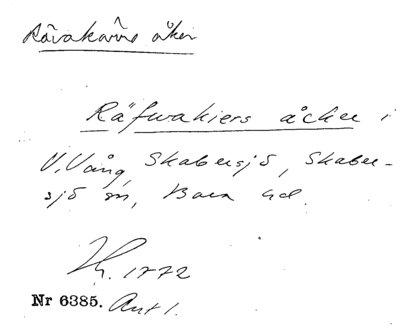 Rävakärrs åker
Räfwakiers åcker i
V. Vång, Skabersjö, Skaber-
sjö sn, Bara hd.
1772
Nr 6385. Ant 1.